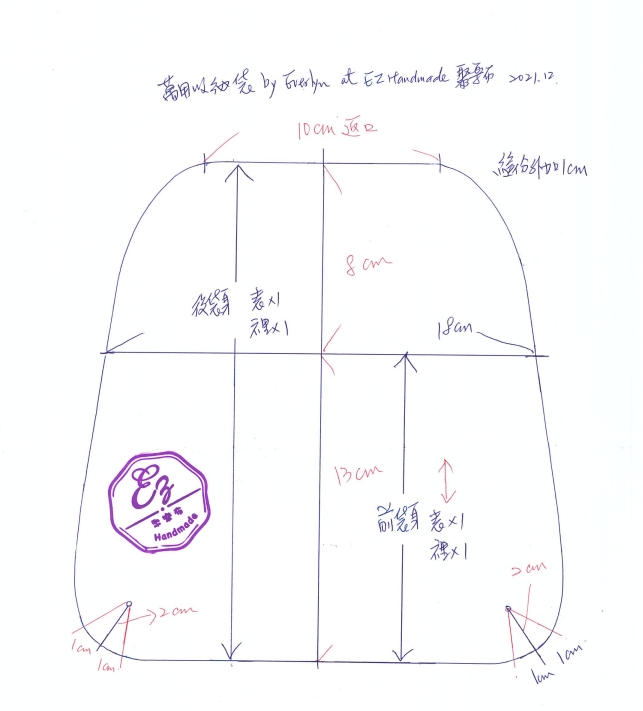 萬用收納袋 by Everlyn at EZ Handmade 翠零布 2021.12.
10cm 返口
縫份外加1cm
8cm
後袋身 表x1
裡x1
18cm
13cm
Ez
Handmade
前袋身 表x1
裡x1
2cm
2cm
1cm
1cm
1cm
1cm